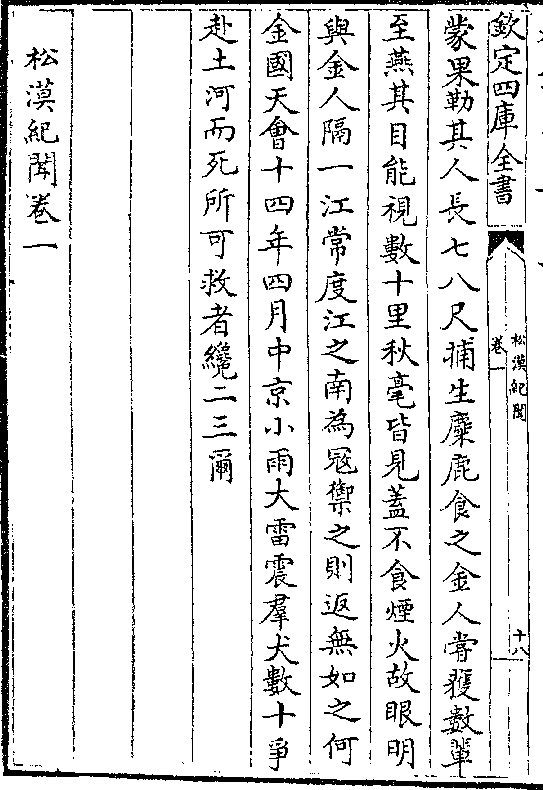 欽定四庫全書
松漠紀聞
卷一
十八
蒙果勒其人長七八尺捕生麋鹿食之金人嘗獲數輩
至燕其目能視數十里秋毫皆見蓋不食煙火故眼明
與金人隔一江常度江之南為冦禦之則返無如之何
金國天會十四年四月中京小雨大雷震羣犬數十爭
赴土河而死所可救者纔二三爾
松漠紀聞卷一